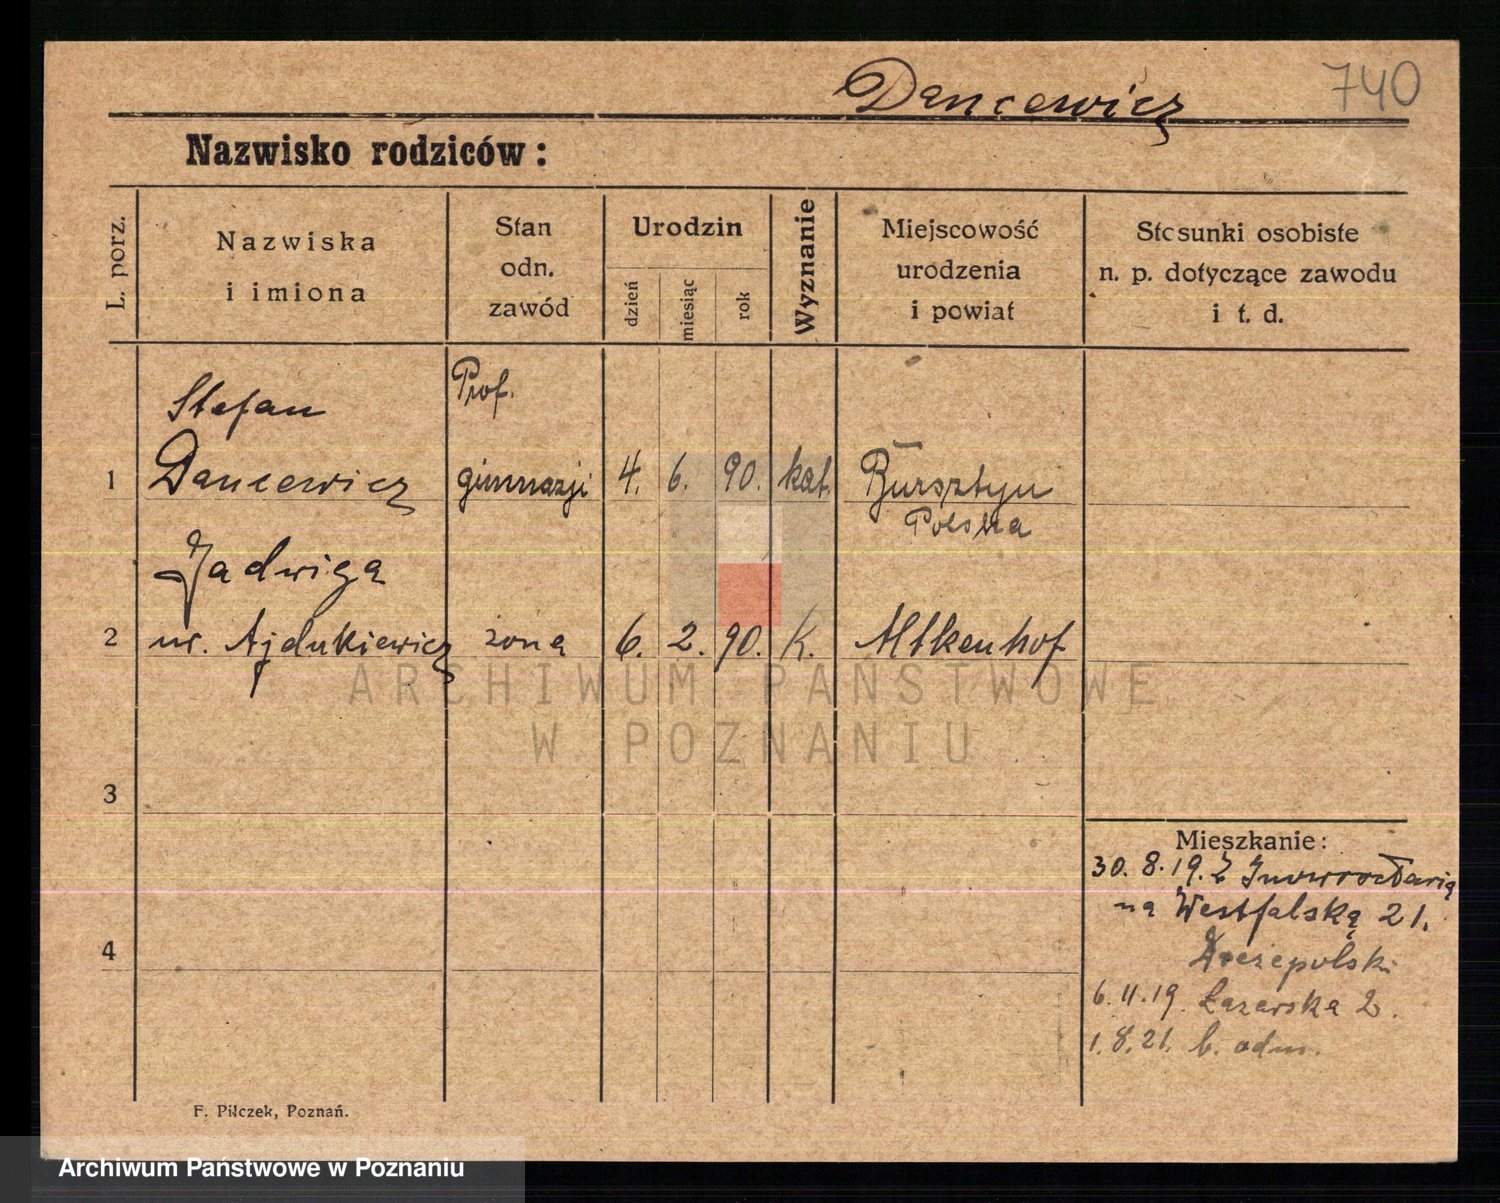 Dancewicz
740
Nazwisko rodziców:
L. porz.
Nazwiska
i imiona
Stan
odn.
zawód
Urodzin
dzień
miesiąc
rok
Wyznanie
Miejscowość
urodzenia
i powiat
Stosunki osobiste
n. p. dotyczące zawodu
i t. d.
Stefan
Prof.
1 Dancewicz gimnazji 4. 6. 90. kat. Bursztyn
Polska
Jadwiga
2 ur. Ajdukiewicz żona 6. 2. 90. K. Altkenhof
3
4
Mieszkanie:
30. 8. 19. Z Inowrocławia
na Westfalską 21.
6. 11. 19. Łazarska 2.
1. 8. 21. b. odm.
F. Pilczek, Poznań.
ARCHIWUM PAŃSTWOWE
W POZNANIU
Archiwum Państwowe w Poznaniu